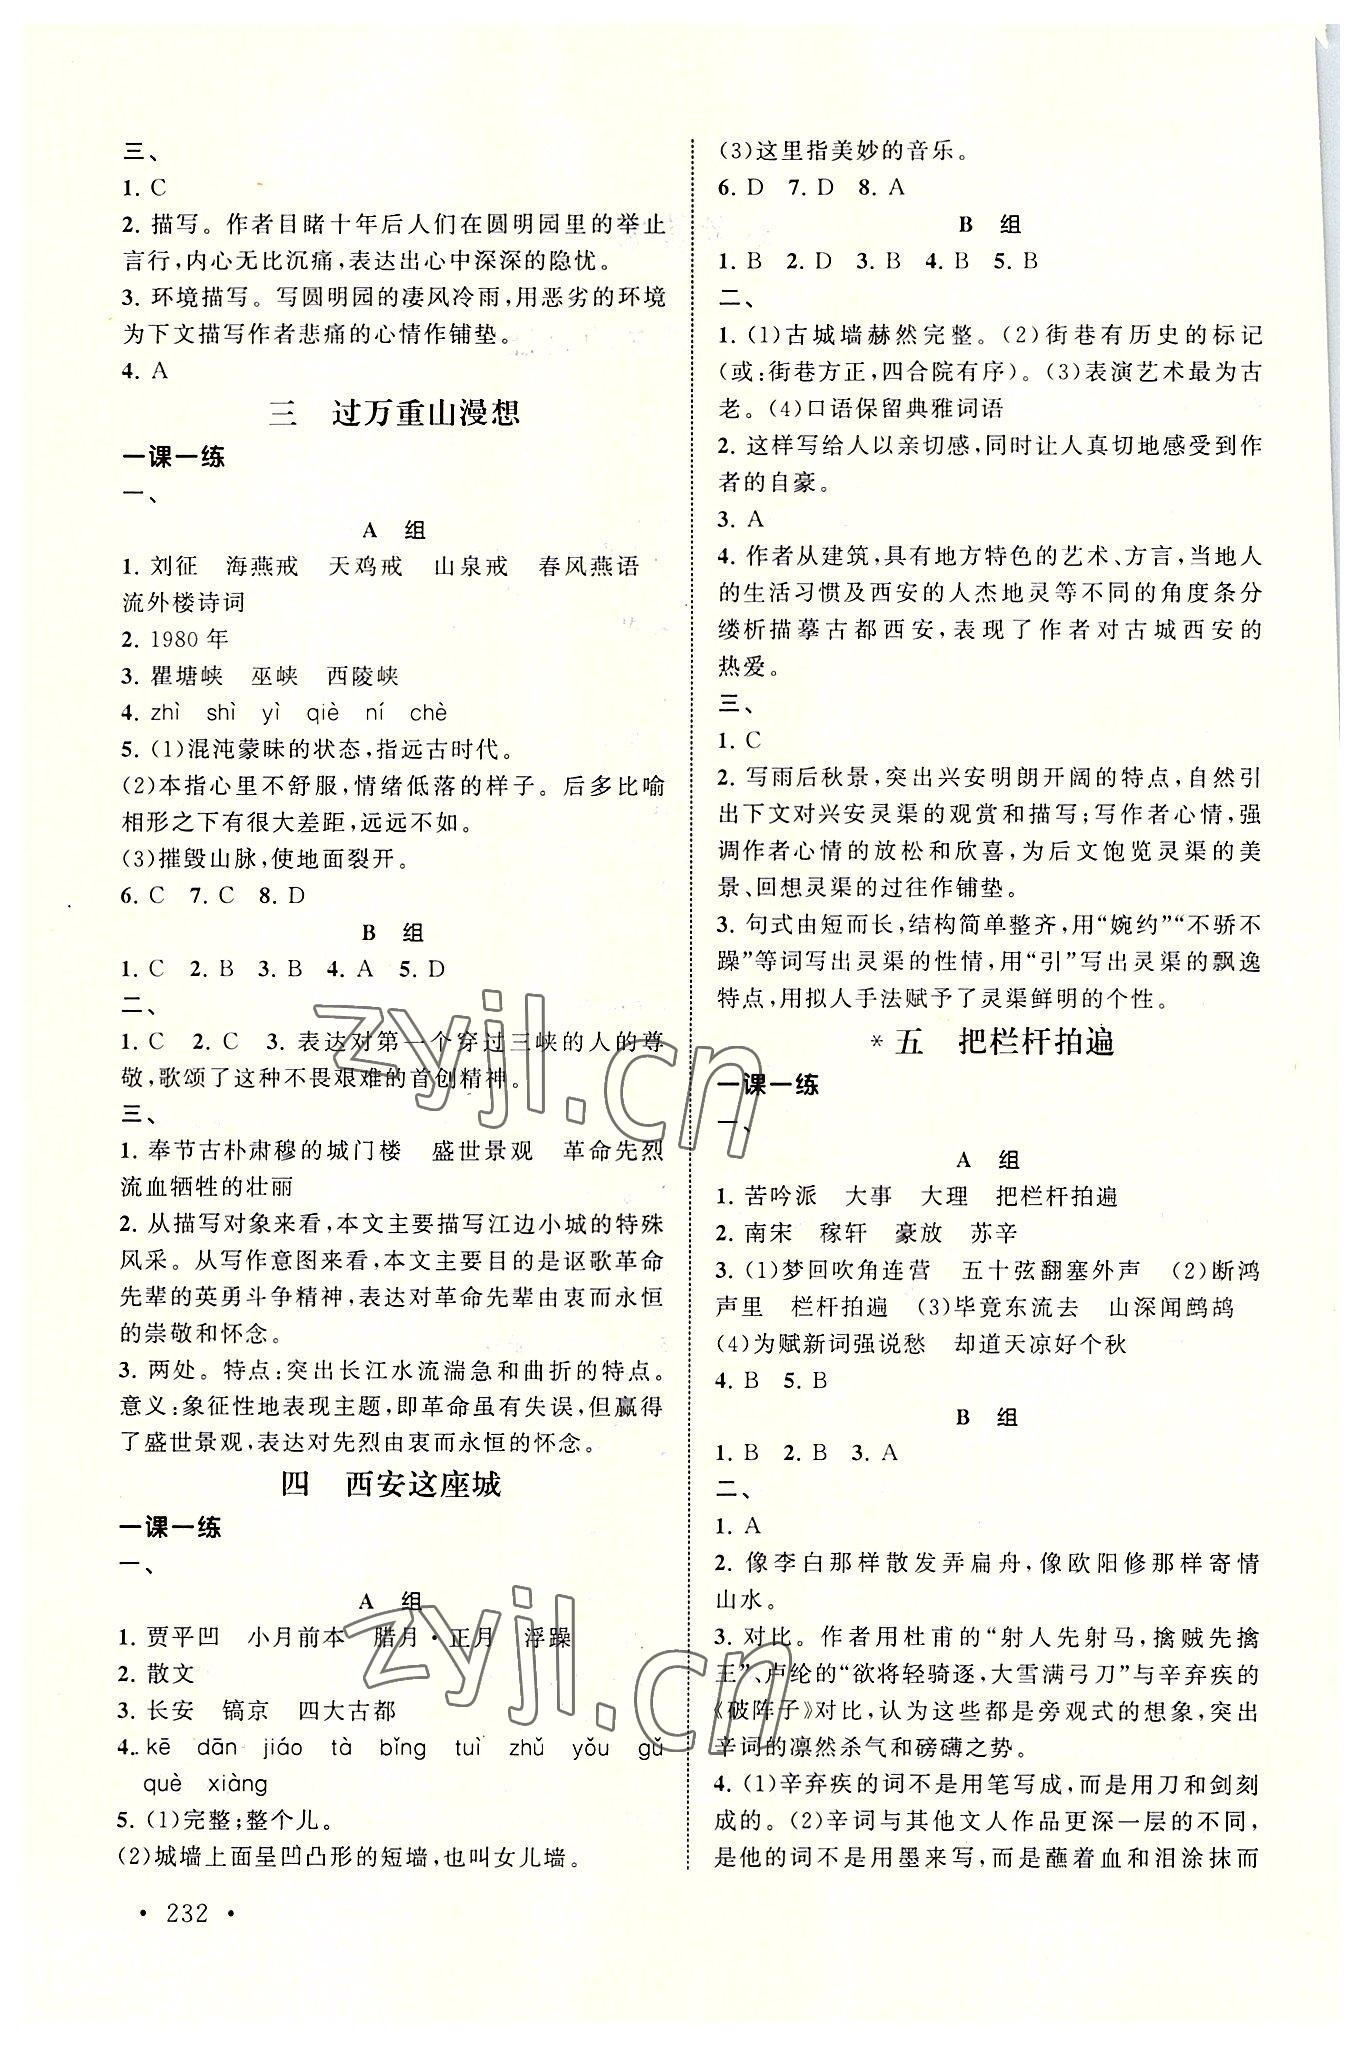 三、
1. C
2. 描写。作者目睹十年后人们在圆明园里的举止
言行,内心无比沉痛,表达出心中深深的隐忧。
3. 环境描写。写圆明园的凄风冷雨,用恶劣的环境
为下文描写作者悲痛的心情作铺垫。
4. A
三 过万重山漫想
一课一练
一、
A 组
1. 刘征 海燕戒 天鸡戒 山泉戒 春风燕语
流外楼诗词
2. 1980 年
3. 瞿塘峡 巫峡 西陵峡
4. zhì shì yì qiè ní chè
5. (1)混沌蒙昧的状态,指远古时代。
(2)本指心里不舒服,情绪低落的样子。后多比喻
相形之下有很大差距,远远不如。
(3)摧毁山脉,使地面裂开。
6. C 7. C 8. D
B 组
1. C 2. B 3. B 4. A 5. D
二、
1. C 2. C 3. 表达对第一个穿过三峡的人的尊
敬,歌颂了这种不畏艰难的首创精神。
三、
1. 奉节古朴肃穆的城门楼 盛世景观 革命先烈
流血牺牲的壮丽
2. 从描写对象来看,本文主要描写江边小城的特殊
风采。从写作意图来看,本文主要目的是讴歌革命
先辈的英勇斗争精神,表达对革命先辈由衷而永恒
的崇敬和怀念。
3. 两处。特点:突出长江水流湍急和曲折的特点。
意义:象征性地表现主题,即革命虽有失误,但赢得
了盛世景观,表达对先烈由衷而永恒的怀念。
四 西安这座城
一课一练
一、
A 组
1. 贾平凹 小月前本 腊月·正月 浮躁
2. 散文
3. 长安 镐京 四大古都
4. kē dān jiáo tà bǐng tuì zhǔ yǒu gǔ
què xiàng
5. (1)完整;整个儿。
(2)城墙上面呈凹凸形的短墙,也叫女儿墙。
(3)这里指美妙的音乐。
6. D 7. D 8. A
B 组
1. B 2. D 3. B 4. B 5. B
二、
1. (1)古城墙赫然完整。(2)街巷有历史的标记
(或:街巷方正,四合院有序)。(3)表演艺术最为古
老。(4)口语保留典雅词语
2. 这样写给人以亲切感,同时让人真切地感受到作
者的自豪。
3. A
4. 作者从建筑,具有地方特色的艺术、方言,当地人
的生活习惯及西安的人杰地灵等不同的角度条分
缕析描摹古都西安,表现了作者对古城西安的
热爱。
三、
1. C
2. 写雨后秋景,突出兴安明朗开阔的特点,自然引
出下文对兴安灵渠的观赏和描写;写作者心情,强
调作者心情的放松和欣喜,为后文饱览灵渠的美
景、回想灵渠的过往作铺垫。
3. 句式由短而长,结构简单整齐,用“婉约”“不骄不
躁”等词写出灵渠的性情,用“引”写出灵渠的飘逸
特点,用拟人手法赋予了灵渠鲜明的个性。
*五 把栏杆拍遍
一课一练
一、
A 组
1. 苦吟派 大事 大理 把栏杆拍遍
2. 南宋 稼轩 豪放 苏辛
3. (1)梦回吹角连营 五十弦翻塞外声 (2)断鸿
声里 栏杆拍遍 (3)毕竟东流去 山深闻鹧鸪
(4)为赋新词强说愁 却道天凉好个秋
4. B 5. B
B 组
1. B 2. B 3. A
二、
1. A
2. 像李白那样散发弄扁舟,像欧阳修那样寄情
山水。
3. 对比。作者用杜甫的“射人先射马,擒贼先擒
王”、卢纶的“欲将轻骑逐,大雪满弓刀”与辛弃疾的
《破阵子》对比,认为这些都是旁观式的想象,突出
辛词的凛然杀气和磅礴之势。
4. (1)辛弃疾的词不是用笔写成,而是用刀和剑刻
成的。(2)辛词与其他文人作品更深一层的不同,
是他的词不是用墨来写,而是蘸着血和泪涂抹而
· 232 ·
zyjl.cn
zyjl.cn